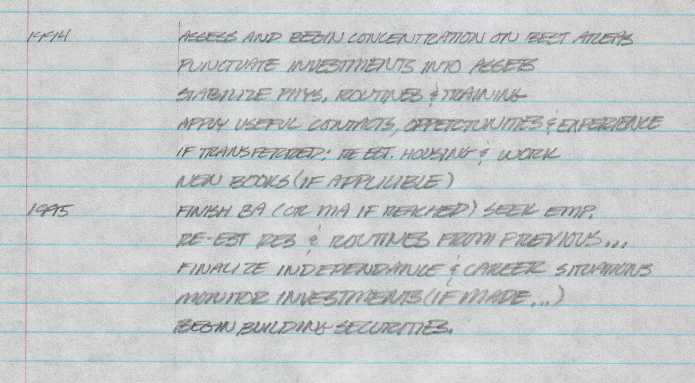 1994 ASSESS AND BEGIN CONCENTRATION ON BEST AREAS
PUNCTUATE INVESTMENTS INTO ASSETS
STABILIZE PHYS, ROUTINES & TRAINING
APPLY USEFUL CONTACTS, OPPERTUNITIES & EXPERIENCE
IF TRANSFERRED: RE EST. HOUSING & WORK
NEW BOOKS (IF APPLICIBLE)
1995 FINISH BA (OR MA IF REACHED) SEEK EMP.
RE-EST RES & ROUTINES FROM PREVIOUS...
FINALIZE INDEPENDANCE & CAREER SITUATIONS
MONITOR INVESTMENTS (IF MADE...)
BEGIN BUILDING SECURITIES.